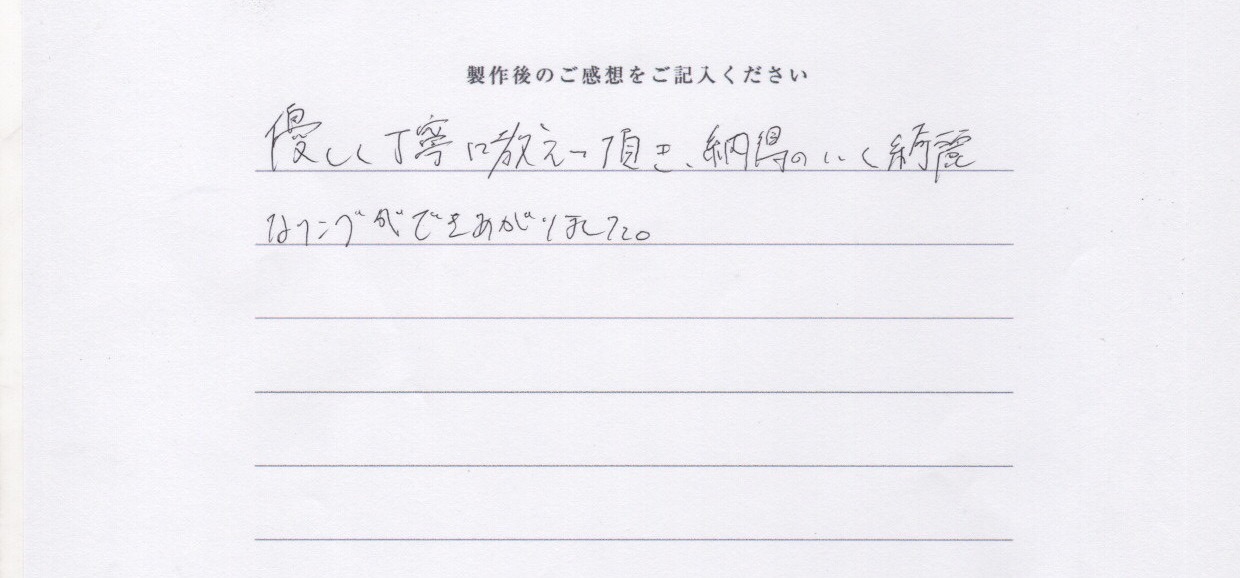 製作後のご感想をご記入ください
優しく丁寧に教えて頂き、納得のいく綺麗
なリングができあがりました。